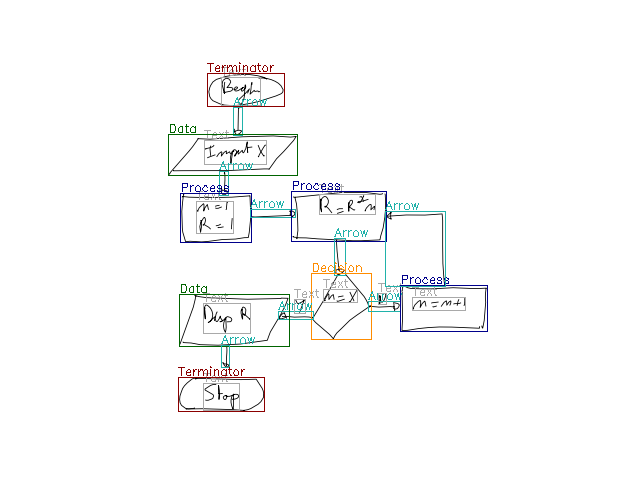 Terminator
Begin
Arrow
Data
Text
Input X
Arrow
Process
Text
n = 1
R = 1
Arrow
Process
Text
R = R² n
Arrow
Arrow
Decision
Text
n = X
Arrow
Text
N
Process
Text
n = n+1
Arrow
Text
Data
Text
Disp R
Arrow
Terminator
Text
Stop